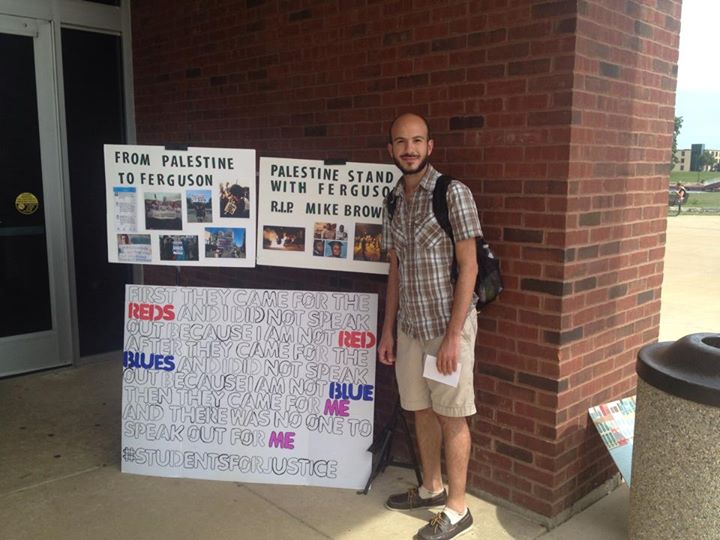 FROM PALESTINE
TO FERGUSON
PALESTINE STAND
WITH FERGUSO
R.I.P. MIKE BROW
FIRST THEY CAME FOR THE
REDS AND I DID NOT SPEAK
OUT BECAUSE I AM NOT RED
AFTER THEY CAME FOR THE
BLUES AN NOT SPEAK
OUT BECAUSE I AM NOT BLUE
THEN THEY CAME FOR ME
AND THERE WAS NO ONE TO
SPEAK OUT FOR ME
#STUDENTSFORJUSTICE